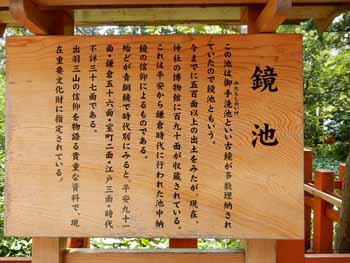 鏡池
この池は御手洗池といい古鏡が多数埋納され
みたらしいけ
ていたので鏡池ともいう。
今までに五百面以上の出土をみたが、現在、
神社の博物館に百九十面が収蔵されている。
これは平安から鎌倉時代に行われた池中納
鏡の信仰によるものである。
殆どが青銅鏡で時代別にみると、平安九十一
面・鎌倉五十六面・室町二面・江戸三面・時代
不詳三十七面である。
出羽三山の信仰を物語る貴重な資料で、現
在重要文化財に指定されている。